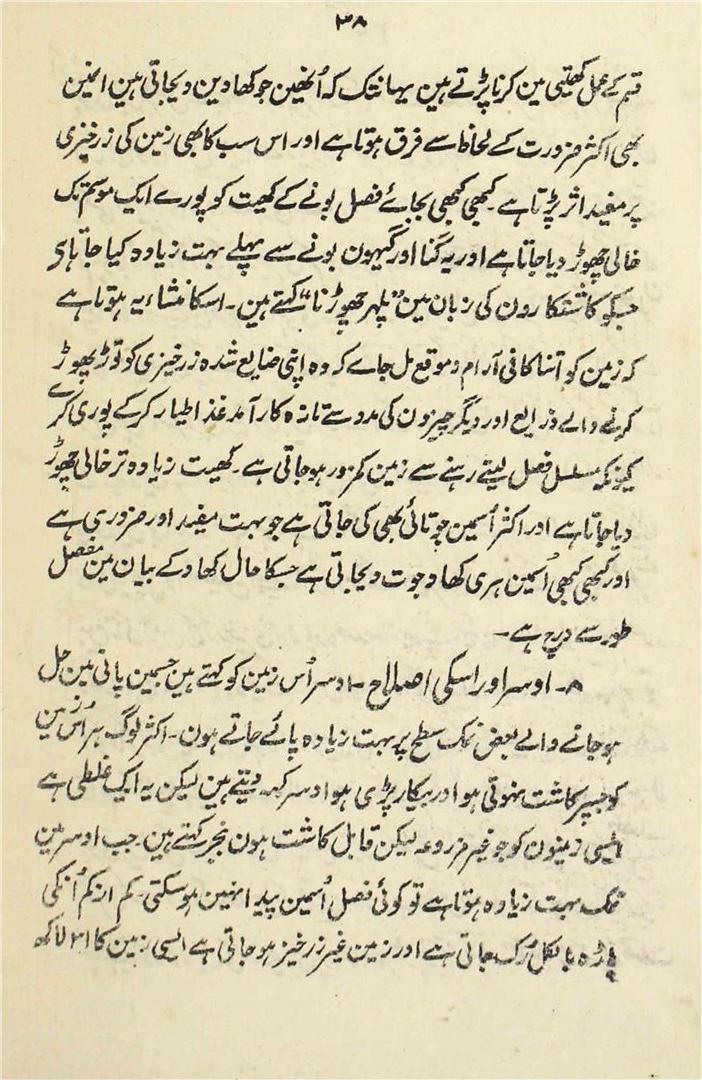 ۳۸
قسم کے عمل کھیتی مین کرنا پڑتے ہین یہانتک کہ اُنھین جو کھادین دیجاتی ہین انمین
بھی اکثر ضرورت کے لحاظ سے فرق ہوتا ہے اور اس سب کا بھی زمین کی زرخیزی
پر مفید اثر پڑتا ہے۔ کبھی کبھی بجائے فصل بونے کے کھیت کو پورے ایک موسم تک
خالی چھوڑ دیا جاتا ہے اور یہ گنا اور گیہون بونے سے پہلے بہت زیادہ کیا جاتا ہی
جسکو کاشتکارون کی زبان مین "پلہر چھوڑنا" کہتے ہین۔ اسکا منشاء یہ ہوتا ہے
کہ زمین کو اتنا کافی آرام و موقع مل جاے کہ وہ اپنی ضایع شدہ زرخیزی کو توڑ پھوڑ
کرنے والے ذرایع اور دیگر چیزون کی مدد سے تازہ کار آمد غذا طیار کرکے پوری کرے
کیونکہ مسلسل فصل لیتے رہنے سے زمین کمزور ہوجاتی ہے۔ کھیت زیادہ تر خالی چھوڑ
دیا جاتا ہے اور اکثر اُسمین جوتائی بھی کی جاتی ہے جو بہت مفید اور ضروری ہے
اور کبھی کبھی اُسمین ہری کھاد جوت دیجاتی ہے جسکا حال کھاد کے بیان مین مفصل
طور سے درج ہے۔
۸۔ اوسر اور اسکی اصلاح۔ اوسر اُس زمین کو کہتے ہین جسمین پانی مین حل
ہوجانے والے بعض نمک سطح پر بہت زیادہ پائے جاتے ہون۔ اکثر لوگ ہر اُس زمین
کو جسپر کاشت نہوتی ہو اور بیکار پڑی ہو اوسر کہہ دیتے ہین لیکن یہ ایک غلطی ہے
ایسی زمینون کو جو غیر مزروعہ لیکن قابل کاشت ہون بنجر کہتے ہین۔ جب اوسر مین
نمک بہت زیادہ ہوتا ہے تو کوئی فصل اُسمین پیدا نہین ہوسکتی۔ کم از کم اُنکی
باڑہ بالکل رُک جاتی ہے اور زمین غیر زرخیز ہوجاتی ہے ایسی زمین کا ۳۱ لاکھ